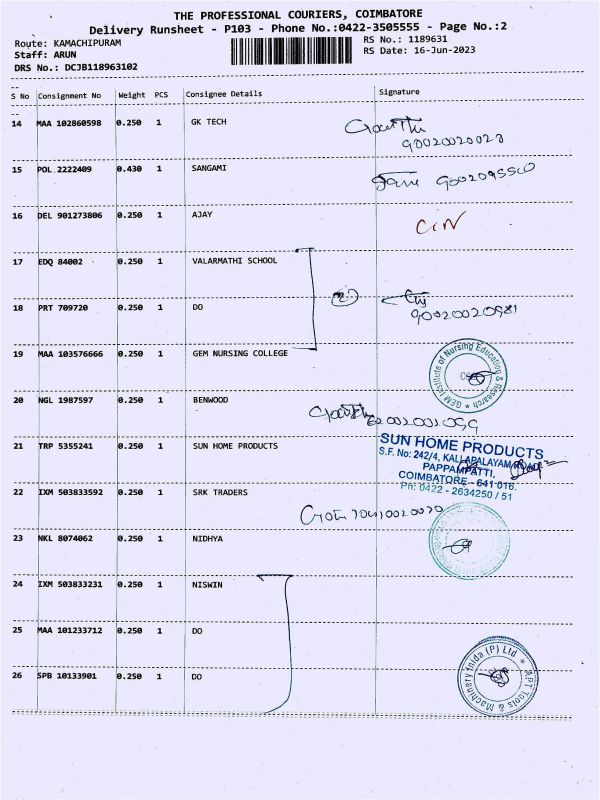 THE PROFESSIONAL COURIERS, COIMBATORE
Delivery Runsheet - P103 - Phone No.:0422-3505555 - Page No.:2
Route: KAMACHIPURAM
RS No.: 1189631
Staff: ARUN
RS Date: 16-Jun-2023
DRS No.: DCJB118963102
S No Consignment No Weight PCS Consignee Details Signature
14 MAA 102860598 0.250 1 GK TECH
15 POL 2222409 0.430 1 SANGAMI
16 DEL 901273806 0.250 1 AJAY
17 EDQ 84002 0.250 1 VALARMATHI SCHOOL
18 PRT 709720 0.250 1 DO
2
90020020981
19 MAA 103576666 0.250 1 GEM NURSING COLLEGE
GEM Institute of Nursing Education & Research
20 NGL 1987597 0.250 1 BENWOOD
21 TRP 5355241 0.250 1 SUN HOME PRODUCTS
SUN HOME PRODUCTS
S.F. No: 242/4, KALLAPALAYAM ROAD,
PAPPAMPATTI,
COIMBATORE - 641 016.
Ph: 0422 - 2634250 / 51
22 IXM 503833592 0.250 1 SRK TRADERS
23 NKL 8074062 0.250 1 NIDHYA
24 IXM 503833231 0.250 1 NISWIN
25 MAA 101233712 0.250 1 DO
26 SPB 10133901 0.250 1 DO
APT Tools & Machinery India (P) Ltd